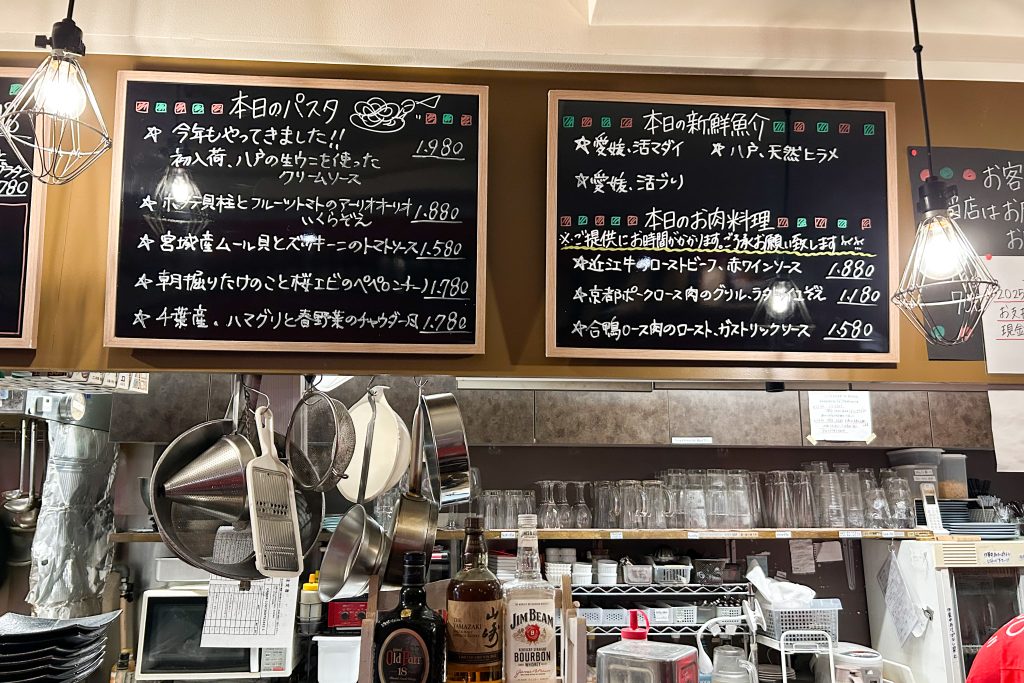 780
本日のパスタ
☆ 今年もやってきました!!
初入荷、八戸の生ウニを使った
クリームソース
1.980
☆ ホタテ貝柱とフルーツトマトのアーリオオーリオ
いくらぞえ 1.880
☆ 宮城産ムール貝とズッキーニのトマトソース 1.580
☆ 朝掘りたけのこと桜エビのペペロンチーノ 1.780
☆ 千葉産、ハマグリと春野菜のチャウダー風 1.780
本日の新鮮魚介
☆愛媛、活マダイ ☆八戸、天然ヒラメ
☆愛媛、活ブリ
本日のお肉料理
※ご提供にお時間かかります。ご了承お願い致します!!
☆近江牛のローストビーフ、赤ワインソース 1.880
☆京都ポークロース肉のグリル、ラタトゥイユぞえ 1.180
☆合鴨ロース肉のロースト、ガストリックソース 1.580
お客
当店はお
2025
お支
現金
Old Parr
18
THE
YAMAZAKI
山崎
JIM BEAM
KENTUCKY STRAIGHT
BOURBON
WHISKEY